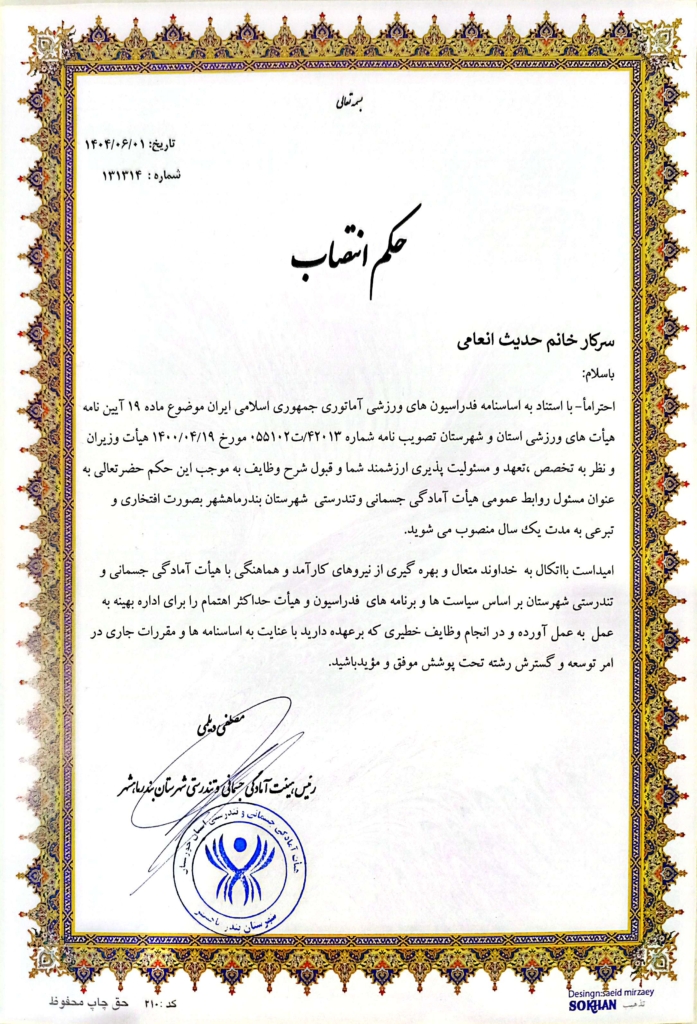 بسمه تعالی
تاریخ: ۱۴۰۴/۰۶/۰۱
شماره : ۱۳۱۳۱۴
حکم انتصاب
سرکار خانم حدیث انعامی
باسلام:
احتراماً- با استناد به اساسنامه فدراسیون های ورزشی آماتوری جمهوری اسلامی ایران موضوع ماده ۱۹ آیین نامه
هیأت های ورزشی استان و شهرستان تصویب نامه شماره ۴۲۰۱۳/ت۰۵۵۱۰۲ مورخ ۱۴۰۰/۰۴/۱۹ هیأت وزیران
و نظر به تخصص ،تعهد و مسئولیت پذیری ارزشمند شما و قبول شرح وظایف به موجب این حکم حضرتعالی به
عنوان مسئول روابط عمومی هیأت آمادگی جسمانی وتندرستی شهرستان بندرماهشهر بصورت افتخاری و
تبرعی به مدت یک سال منصوب می شوید.
امیداست بااتکال به خداوند متعال و بهره گیری از نیروهای کارآمد و هماهنگی با هیأت آمادگی جسمانی و
تندرستی شهرستان بر اساس سیاست ها و برنامه های فدراسیون و هیأت حداکثر اهتمام را برای اداره بهینه به
عمل به عمل آورده و در انجام وظایف خطیری که برعهده دارید با عنایت به اساسنامه ها و مقررات جاری در
امر توسعه و گسترش رشته تحت پوشش موفق و مؤیدباشید.
مصطفی دیلمی
رئیس هیئت آمادگی جسمانی و تندرستی شهرستان بندرماهشهر
هیأت آمادگی جسمانی و تندرستی استان خوزستان
شهرستان بندر ماهشهر
کد :۲۱۰ حق چاپ محفوظ
Desingn:saeid mirzaey
SOKHAN تذهیب